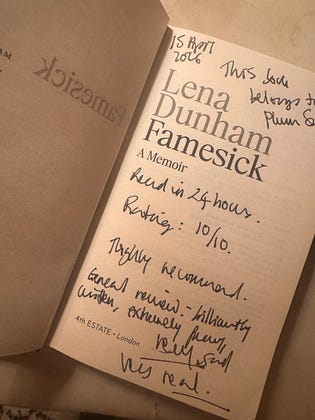 15 April
2026
This book
belongs to
plum
Lena
Dunham
Famesick
A Memoir
Read in 24 hours.
Rating: 10/10.
Highly recommend.
General review - brilliantly
written, extremely funny,
very sad
very real.
4th ESTATE • London
Famesick